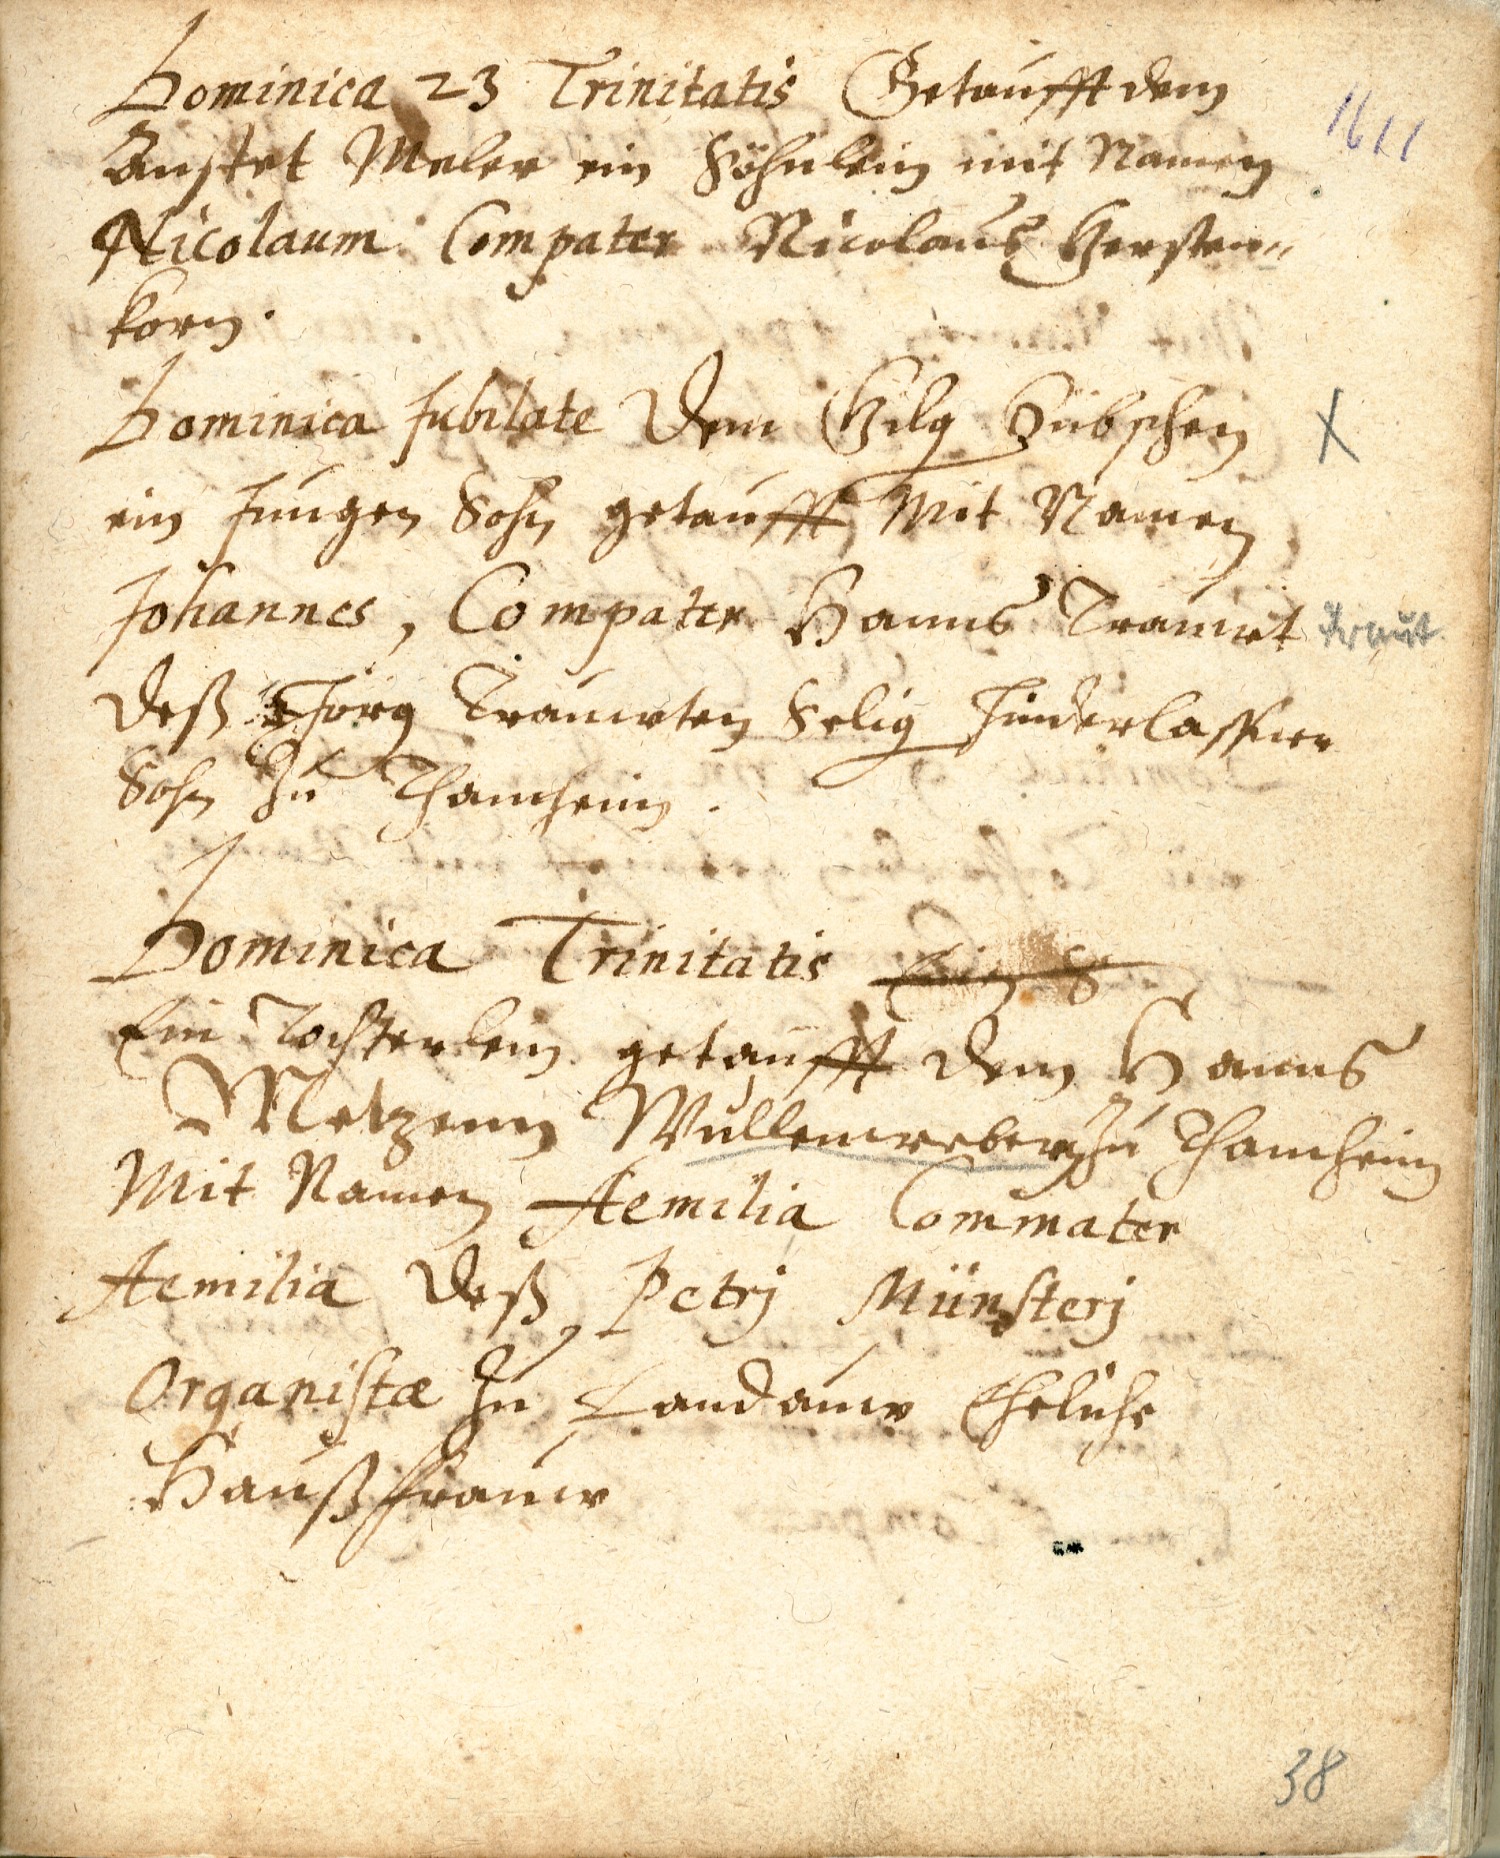 Dominica 23 Trinitatis Getaufft dem
Anstet Meler ein Söhnlein mit Namen 1611
Nicolaum Compater Nicolaus Gersten„
korn.
Dominica Jubilate Dem Gilg Hübschen X
ein Jungen Sohn getaufft Mit Namen
Johannes, Compater Hanns Trauwt Traut
Deß Jörg Trauwten Selig Hinderlassner
Sohn Zu Thamheim.
Dominica Trinitatis Ein S
Ein Tochterlein getaufft dem Hanns
Metzenn Wullenweber Zu Thamheim
Mit Namen Aemilia Commater
Aemilia Deß Petrj Münsterj
Organistæ Zu Landauw Eheliche
Haußfrauw
38